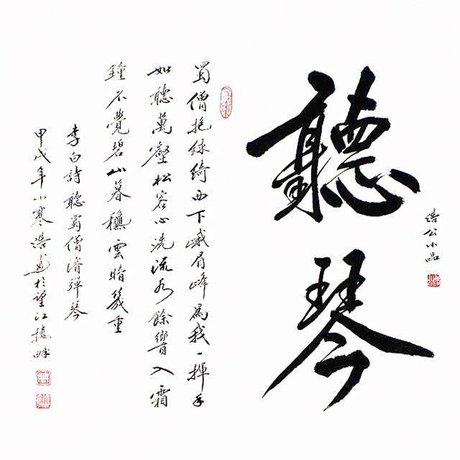 聽琴
浩公小品
蜀僧抱綠綺西下峨眉峰為我一揮手
如聽萬壑松客心洗流水餘響入霜
鐘不覺碧山暮穐雲暗幾重
李白詩聽蜀僧濬彈琴
甲戌年小寒浩书於望江樓畔